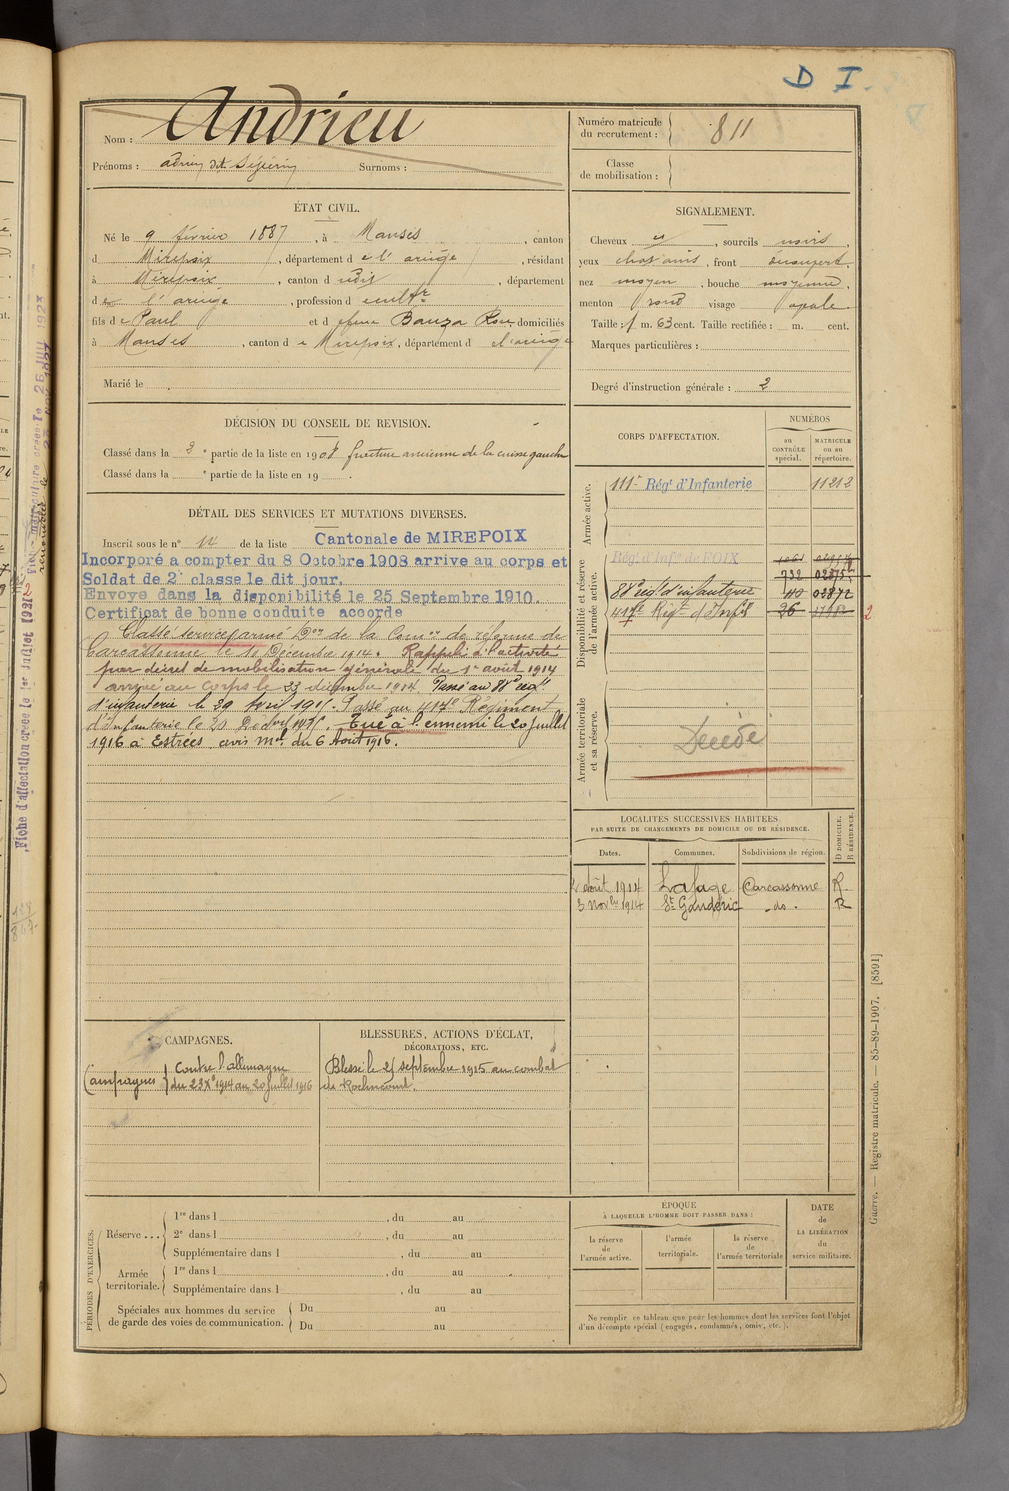 D I
Nom : Andrieu
Prénoms : adrien dit Séverin Surnoms :
Numéro matricule du recrutement : 811
Classe de mobilisation :
ÉTAT CIVIL.
Né le 9 février 1887, à Manses, canton
d Mirepoix, département d e l'ariège, résidant
à Mirepoix, canton d udit, département
d e l'ariège, profession d cultr
fils d e Paul et d efeue Bauza Rose domiciliés
à Manses, canton d e Mirepoix, département d el'ariège
Marié le
SIGNALEMENT.
Cheveux et, sourcils noirs,
yeux chatains, front découvert,
nez moyen, bouche moyenne,
menton rond visage ovale
Taille : 1 m. 63 cent. Taille rectifiée : m. cent.
Marques particulières :
Degré d'instruction générale : 2
DÉCISION DU CONSEIL DE REVISION.
Classé dans la 2e partie de la liste en 1908 fracture ancienne de la cuisse gauche
Classé dans la e partie de la liste en 19 .
DÉTAIL DES SERVICES ET MUTATIONS DIVERSES.
Inscrit sous le n° 14 de la liste Cantonale de MIREPOIX
Incorporé a compter du 8 Octobre 1908 arrive au corps et
Soldat de 2e classe le dit jour.
Envoyé dans la disponibilité le 25 Septembre 1910.
Certificat de bonne conduite accorde
Classé service armé Don de la Comon de réforme de
Carcassonne le 11 Décembre 1914. Rappelé à l'activité
par décret de mobilisation générale du 1er août 1914
arrivé au corps le 23 décembre 1914. Passé au 88e régt
d'infanterie le 29 Avril 1915. Passé au 414e Régiment
d'Infanterie le 20 Tué à l'ennemi le 20 juillet
1916 à Estrées avis mel du 6 Août 1916.
CORPS D'AFFECTATION.
NUMÉROS
au CONTRÔLE spécial.
MATRICULE ou au répertoire.
Armée active.
111e Régt d'Infanterie 11212
Disponibilité et réserve de l'armée active.
Régt d'Infie de FOIX
732
88e régt d'infanterie 110 02872
417e Régt d'Infie 36
2
Armée territoriale et sa réserve.
Décédé
LOCALITÉS SUCCESSIVES HABITÉES
PAR SUITE DE CHANGEMENTS DE DOMICILE OU DE RÉSIDENCE.
Dates. Communes. Subdivisions de région. D DOMICILE. R RÉSIDENCE.
2 août 1914 Lafage Carcassonne R
3 novbre 1914 St Gaudéric -do- R
CAMPAGNES.
Campagnes contre l'allemagne
du 23 Xe 1914 au 20 juillet 1916
BLESSURES, ACTIONS D'ÉCLAT,
DÉCORATIONS, ETC.
Blessé le 25 septembre 1915 au combat
de Roclincourt.
PÉRIODES D'EXERCICES.
Réserve ... 1re dans l , du au
2e dans l , du au
Supplémentaire dans l , du au
Armée territoriale. 1re dans l , du au
Supplémentaire dans l , du au
Spéciales aux hommes du service de garde des voies de communication. Du au
Du au
ÉPOQUE
À LAQUELLE L'HOMME DOIT PASSER DANS :
la réserve de l'armée active.
l'armée territoriale.
la réserve de l'armée territoriale
DATE de LA LIBÉRATION du service militaire.
Ne remplir ce tableau que pour les hommes dont les services font l'objet
d'un décompte spécial (engagés, condamnés, omis, etc.).
Guerre. — Registre matricule. — 85-89-1907. [8591]
Fiche d'affectation créée le 1er Juillet 1921